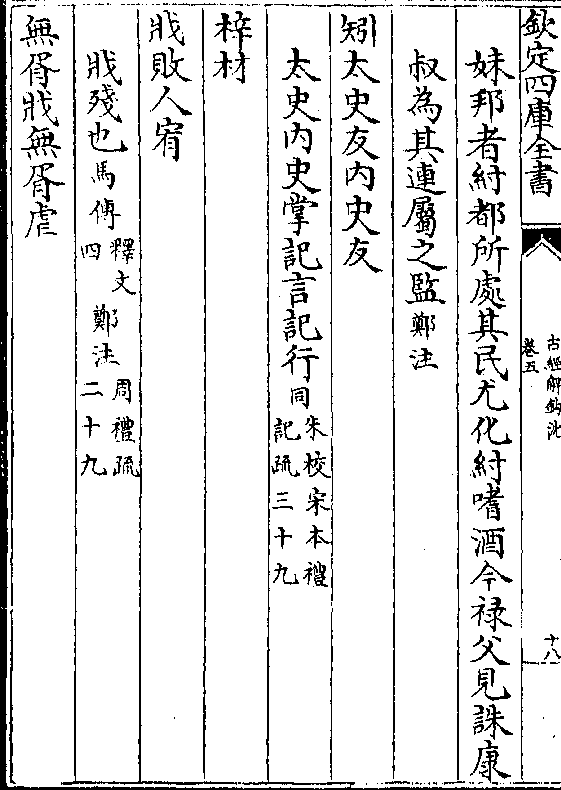 欽定四庫全書
古經解鉤沈
卷五
十八
妹邦者紂都所處其民尤化紂嗜酒今祿父見誅康
叔為其連屬之監鄭注
矧太史友內史友
太史內史掌記言記行同朱校宋本禮記疏三十九
梓材
戕敗人宥
戕殘也馬傳釋文四鄭注周禮疏二十九
無胥戕無胥虐